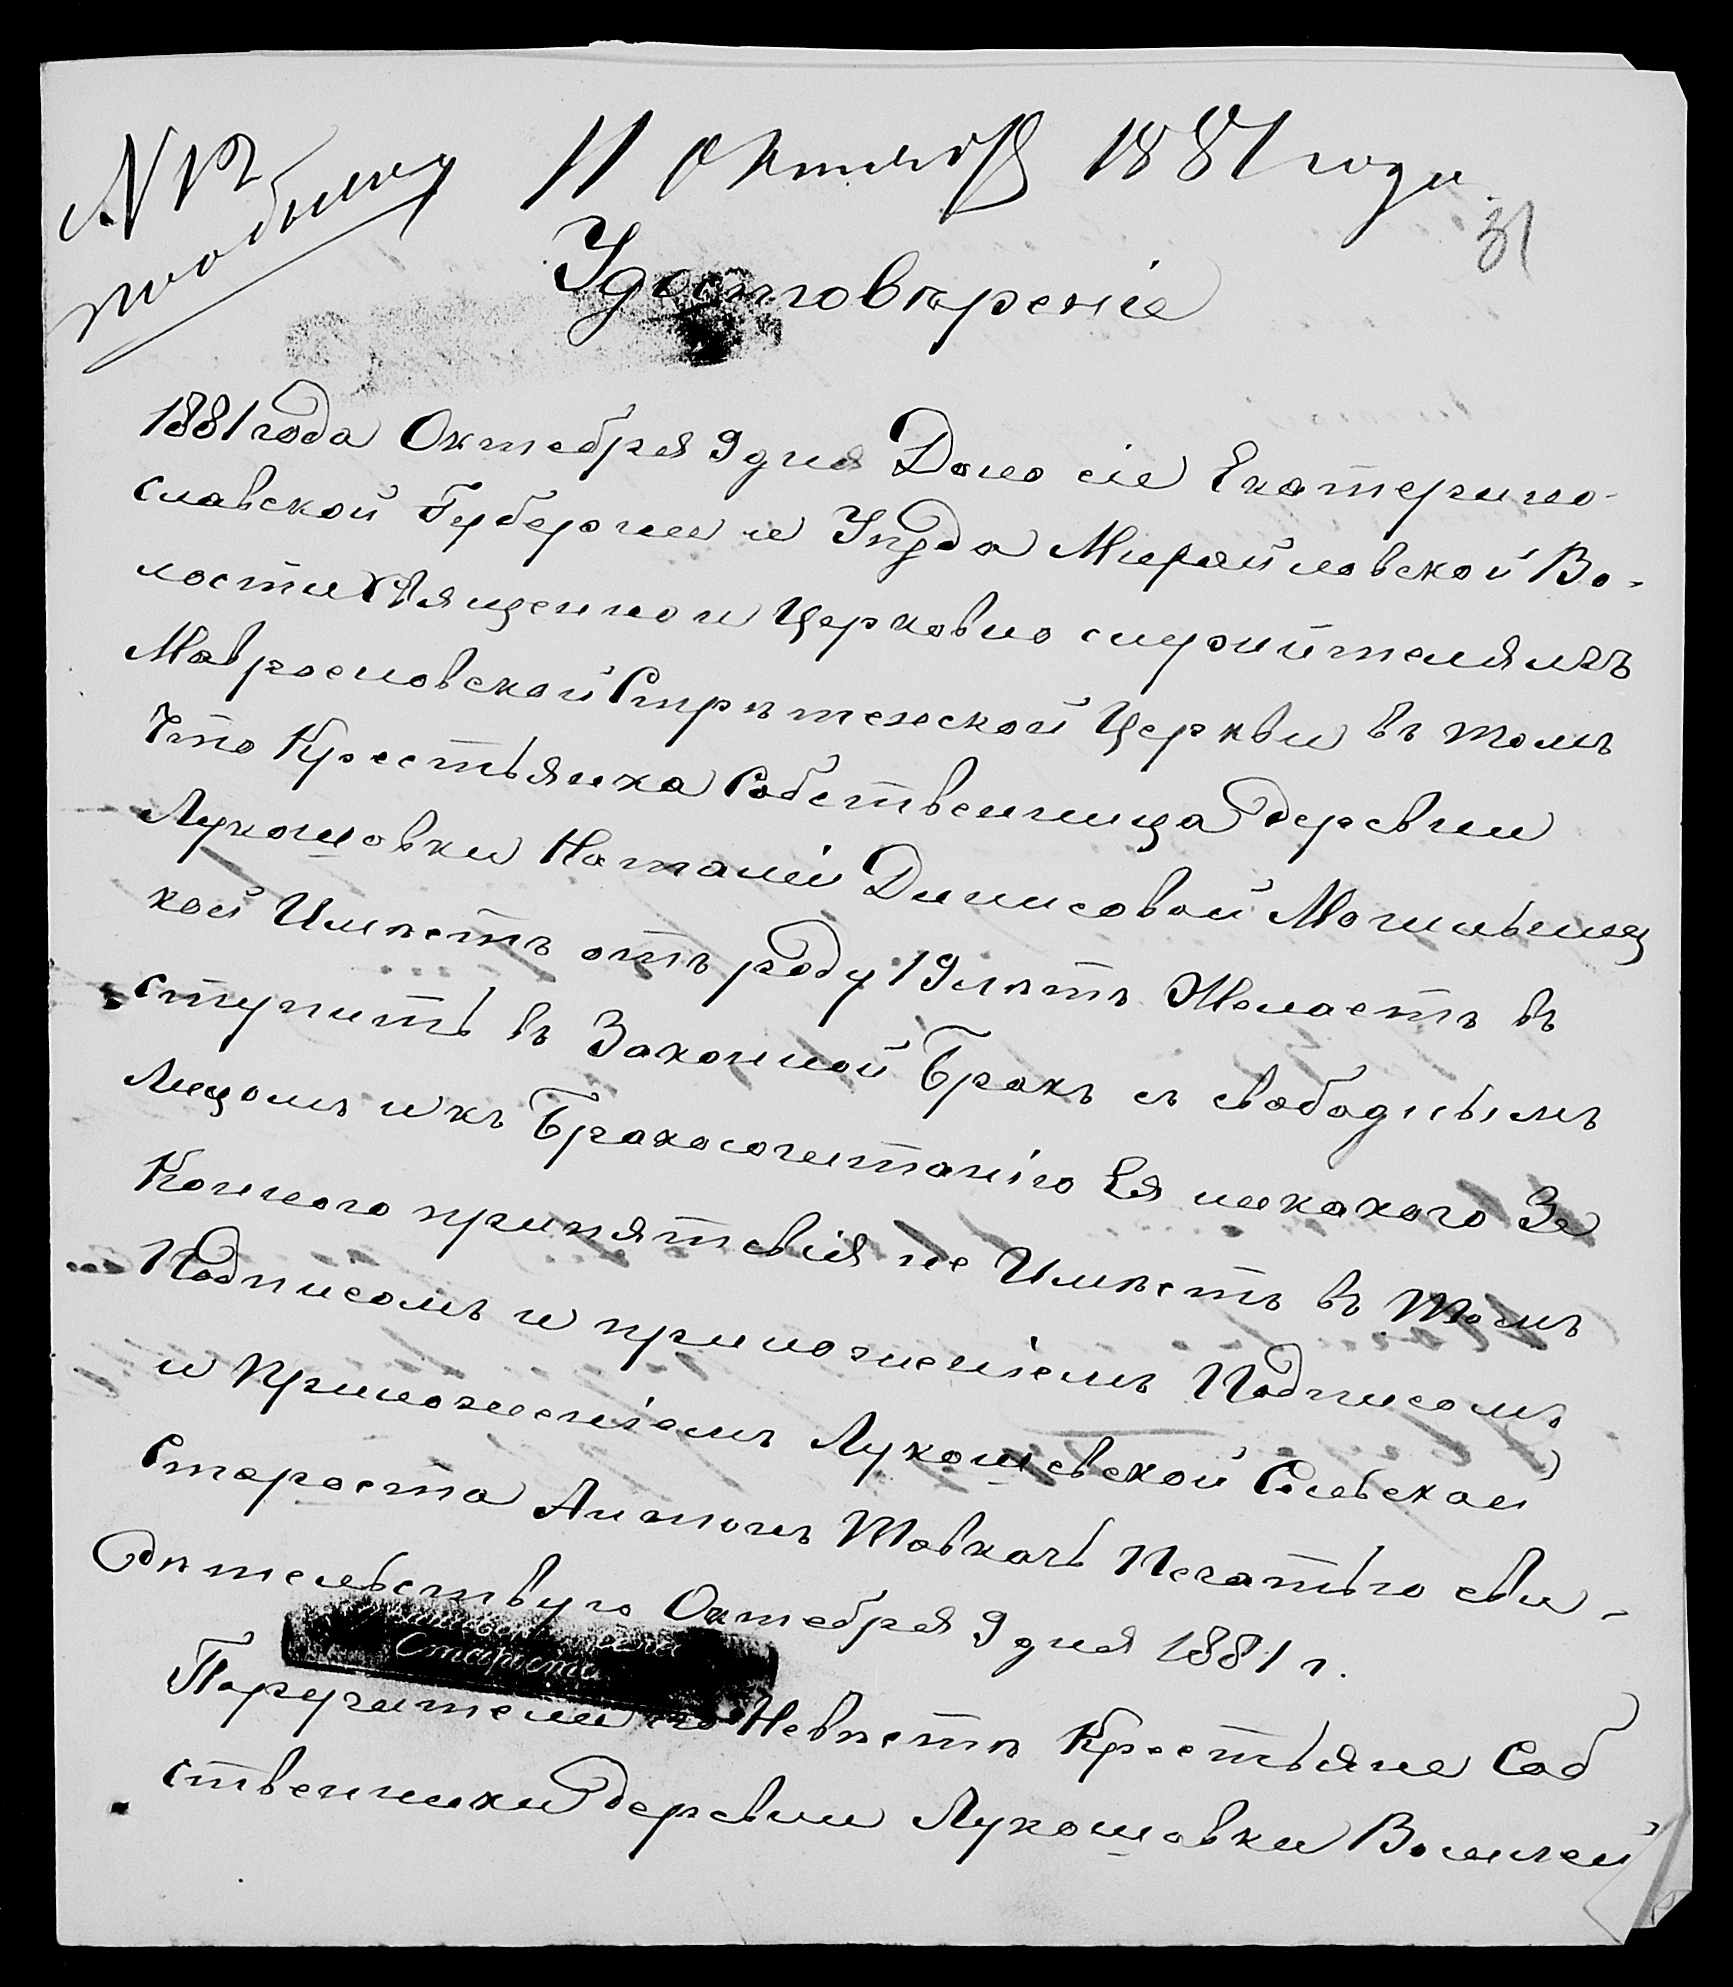 № 12 11 Октября 1881 года
по обыску
31
Удостовѣреніе
1881 года Октебря 9 дня Дано сіе Екатерино-
славской Губернии и Уѣзда Михайловской Во-
лости Священно и Церковно служителямъ
Мавроеновской Стрѣтенской Церкви въ томъ
Что Крестьянка Собственница деревни
Лукошовки Наталіи Динисовой Могильниц
кой Имѣетъ отъ роду 19 лѣтъ Желаетъ въ
ступить въ Законной Бракъ съ свободнымъ
Лицомъ и къ Бракосочитанію Ея никакого За
Конного припятсвія не Имѣетъ въ томъ
Подписомъ и приложеніемъ Подписомъ
и Приложеніемъ Лукошевской Сельской
Староста Антонъ Товкачь Печатью сви-
дѣтельствую Октебря 9 дня 1881 г.
Староста
Поручители по Невѣстѣ Крестьяне Соб
ственники деревни Лукошовки Василей